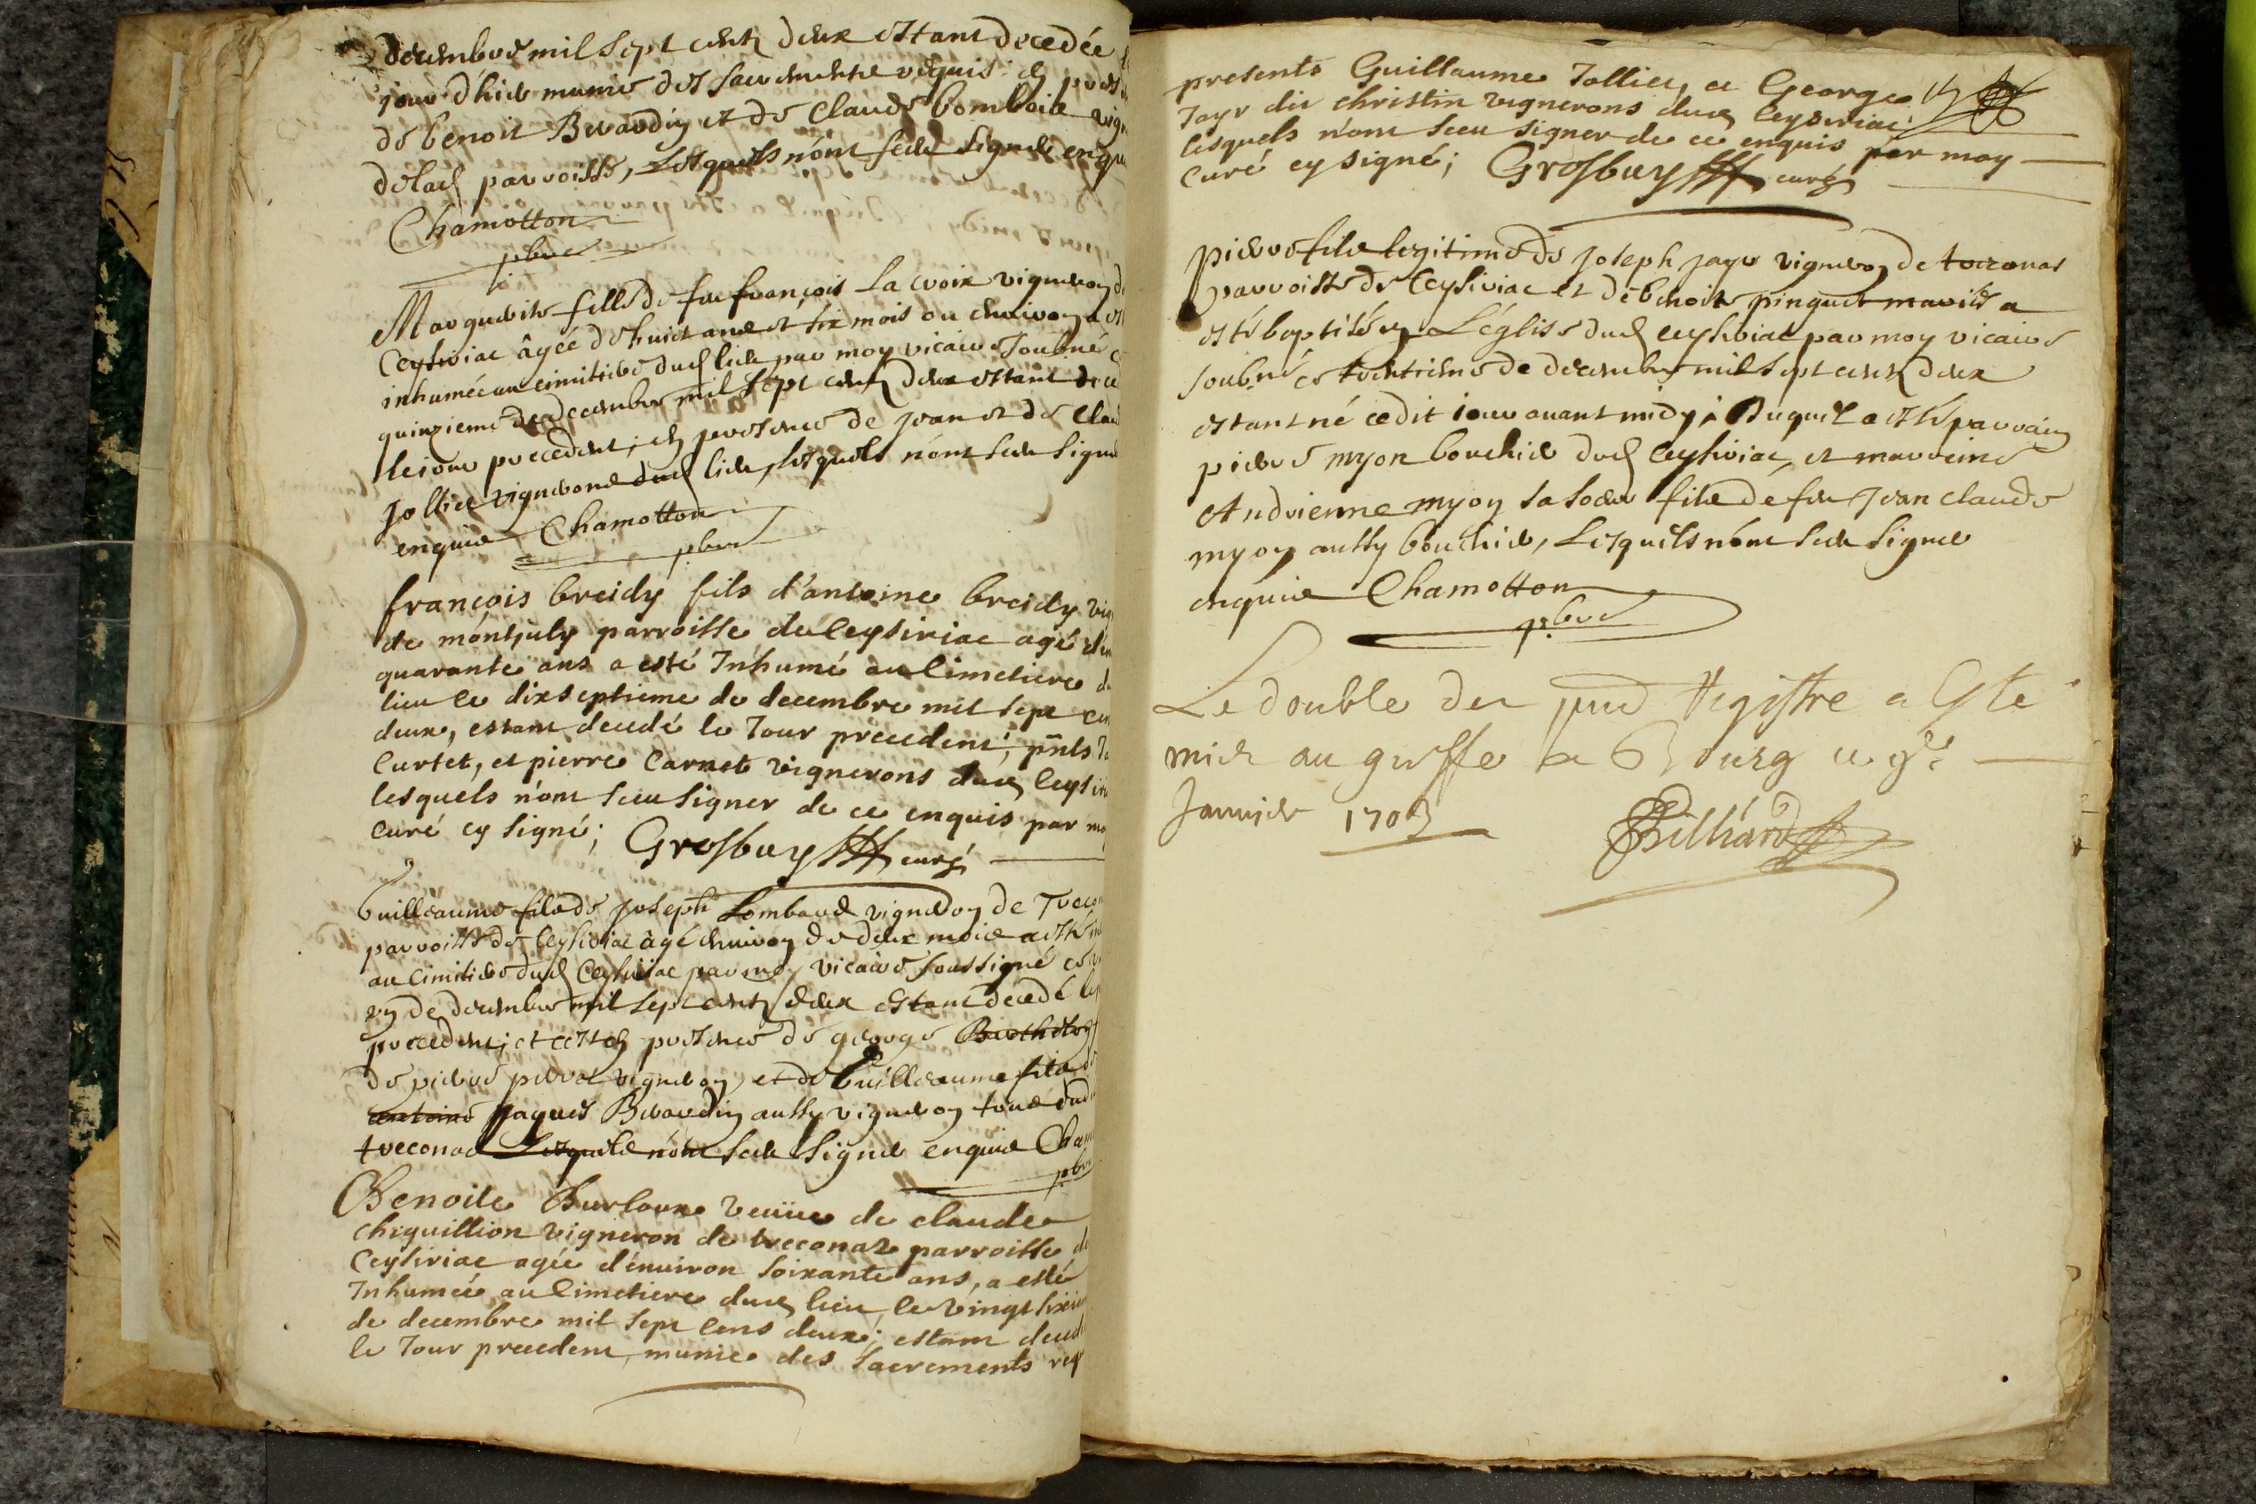 decembre mil sept cents deux estant decedée
jour d'hier munie des sacrements requis en pres
de benoit Beraudin et de Claude bomboix vign
de lad parroisse, Lesquels n'ont sceu signer enqu
Chamotton
pbre
Marguerite fille de feu françois La croix vigneron de
Ceysiriac âgée de huict ans et six mois ou environ a est
inhumée au cimitiere dud lieu par moy vicaire soubné c
quinzieme de decembre mil sept cents deux estant dece
le jour precedent; en presence de jean et de Clau
Jollier vignerons dud lieu, lesquels n'ont sceu signe
enquis Chamotton
pbre
françois breidy fils d'antoine breidy vig
de montjuly parroisse de Ceysiriac agé d'en
quarante ans a esté Inhumé au Cimetiere d
lieu le dixseptieme de decembre mil sept cen
deux, estant decedé le Jour precedent, pnts
Curtet, et pierre Carnet vignerons dud Ceysiri
lesquels n'ont sceu signer de ce enquis par mo
curé cy signé; Grosbuy curé
Guilleaume fils de Joseph Lombard vigneron de Treco
parroisse de Ceysiriac âgé environ de deux mois a esté in
au cimitiere dud Ceysiriac par moy vicaire soussigné ce
de decembre mil sept cents deux estant decedé le
precedent; et cest en presence de george Barthelem
de pierre perret vigneron, et de Guilleaume fils de
antoine Jaques Beraudin aussy vigneron tous dud
treconas Lesquels n'ont sceu signer enquis Cham
pbre
Benoite Burloux veüve de claude
chiquillion vigneron de treconaz parroisse de
Ceysiriac agée d'environ soixante ans, a esté
Inhumée au Cimetiere dud lieu, le vingt sixiem
de decembre mil sept cens deux; estant deced
le Jour precedent, munie des sacrements req
presents Guillaume Jollier, et George
Jayr dit christin vignerons dud Ceysiriac
lesquels n'ont sceu signer de ce enquis par moy
curé cy signé; Grosbuy curé
pierre fils legitime de Joseph jayr vigneron de treconas
parroisse de Ceysiriac et de benoite pinguet mariés a
esté baptisé en L'église dud ceysiriac par moy vicaire
soubné ce trentieme de decembre mil sept cents deux
estant né cedit jour avant midy; Duquel a esté parrain
pierre myon boucher dud Ceysiriac, et marreine
Andrienne myon sa soeur fille de feu Jean claude
myon aussy boucher, Lesquels n'ont sceu signer
enquis Chamotton
pbre
Le double du pnt Registre a Este
mis au greffe de Bourg ce 9e
Janvier 1703
Billiard